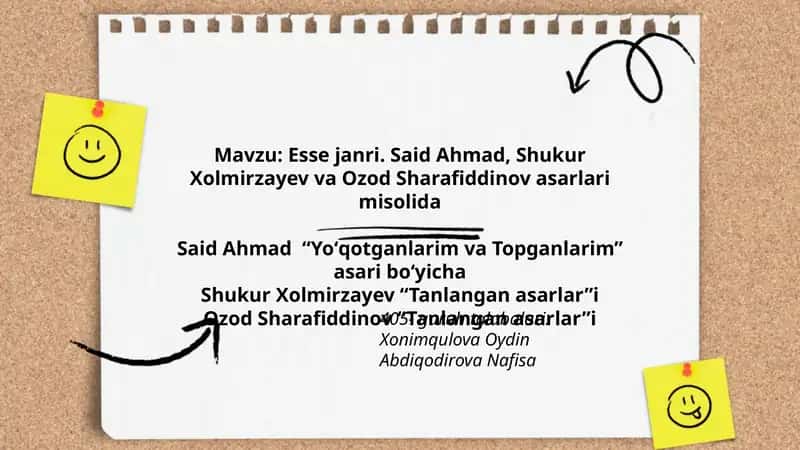 Mavzu: Esse janri. Said Ahmad, Shukur
Xolmirzayev va Ozod Sharafiddinov asarlari
misolida
Said Ahmad “Yo‘qotganlarim va Topganlarim”
asari bo‘yicha
Shukur Xolmirzayev “Tanlangan asarlar”i
Ozod Sharafiddinov “Tanlangan asarlar”i
405-
Xonimqulova Oydin
Abdiqodirova Nafisa